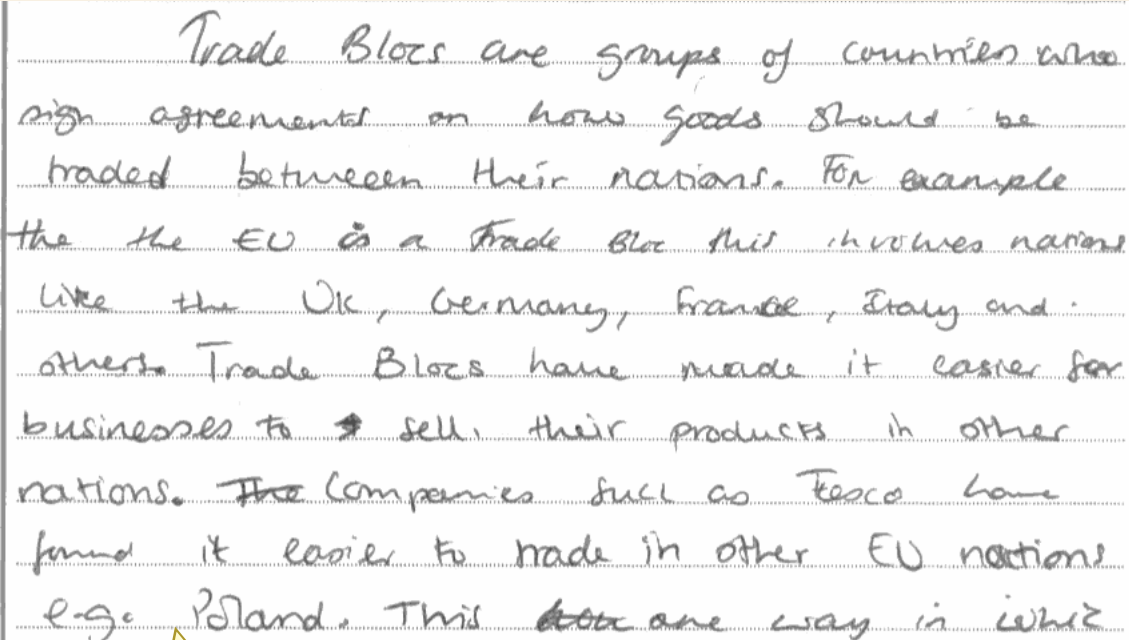 Trade Blocs are groups of countries who
sign agreements on how goods should be
traded betweeen their nations. For example
the the EU is a Trade Bloc this involves nations
like the UK, Germany, France, Italy and
others. Trade Blocs have made it easier for
businesses to sell their products in other
nations. The Companies such as Tesco have
found it easier to trade in other EU nations
e.g. Poland. This one way in which